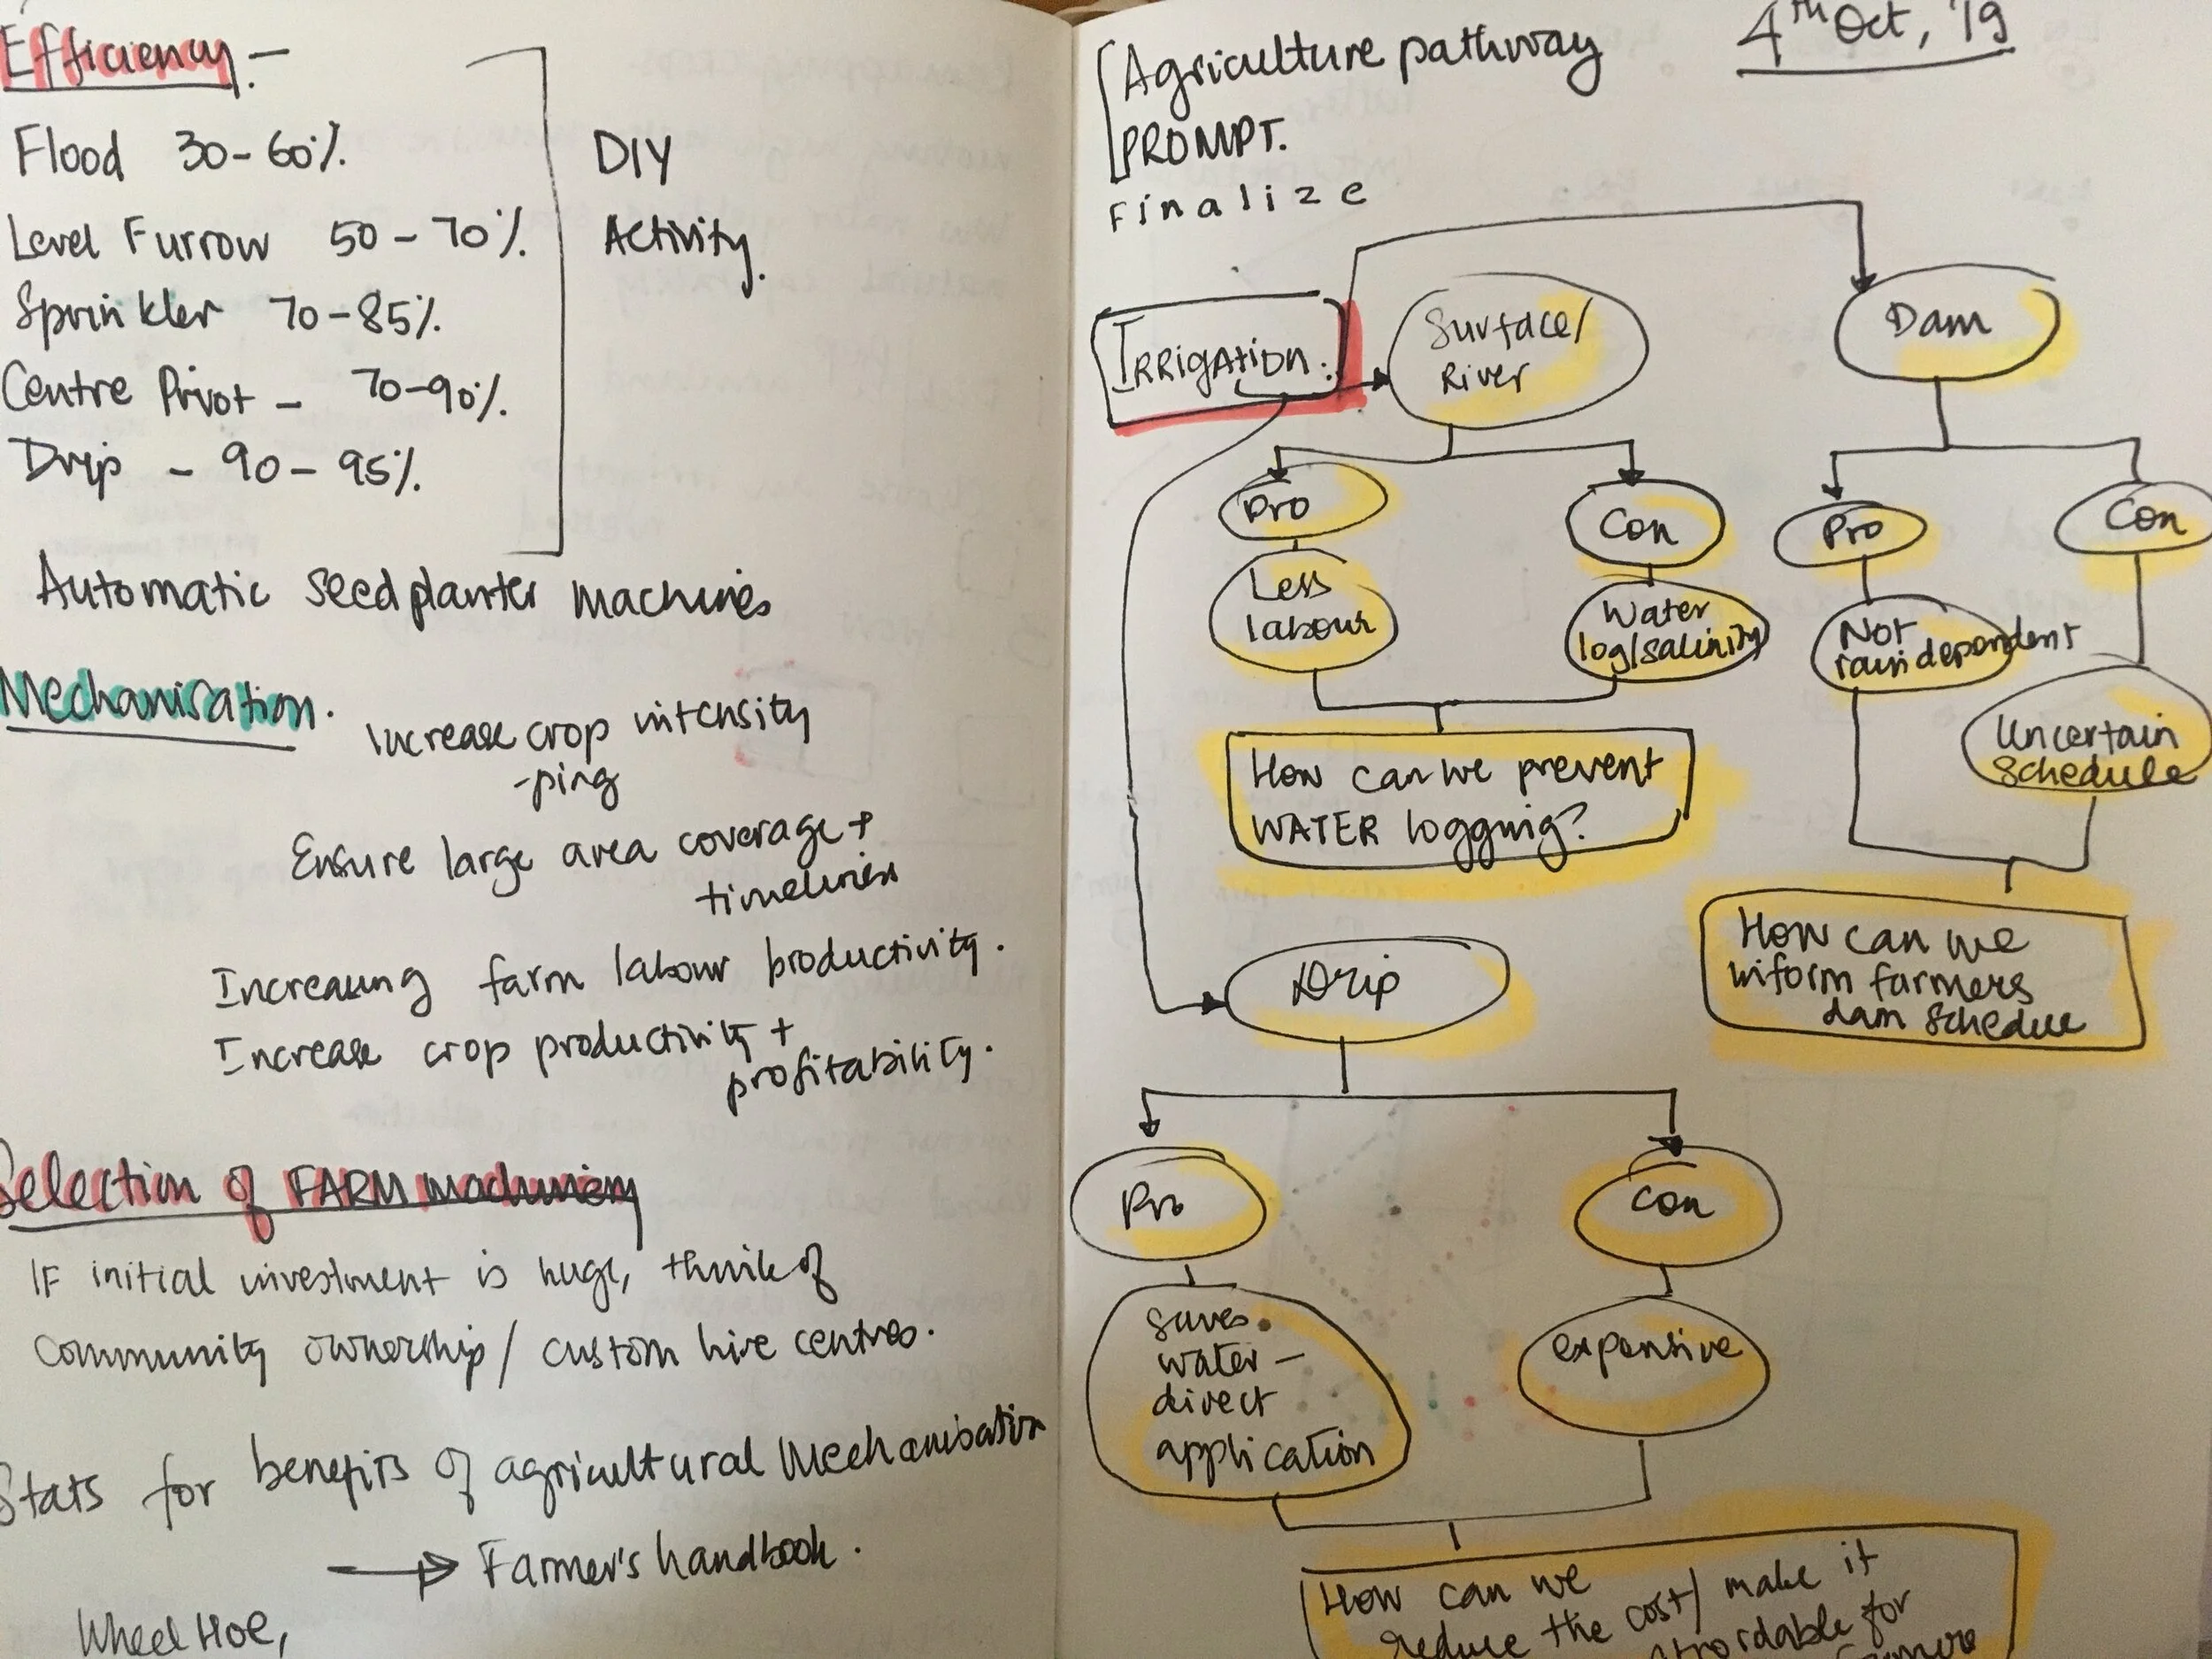 Efficiency -
Flood 30-60%.
Level Furrow 50-70%.
Sprinkler 70-85%.
Centre Pivot - 70-90%.
Drip - 90-95%.
DIY
Activity.
Automatic seedplanter machines
Mechanisation.
Increase crop intensity
-ping
Ensure large area coverage +
timeliness
Increasing farm labour productivity.
Increase crop productivity +
profitability.
Selection of FARM machinery
IF initial investment is huge, think of
community ownership/ custom hire centres.
Stats for benefits of agricultural Mechanisation
→ Farmer's handbook.
Wheel Hoe,
Agriculture pathway
PROMPT.
Finalize
4th Oct, '19
IRRIgAtion:
Surface/
River
Dam
Pro
Con
Pro
Con
Less
labour
Water
log/salinity
Not
rain dependent
Uncertain
Schedule
How can we prevent
WATER logging?
How can we
inform farmers
dam schedule
Drip
Pro
Con
saves
water -
direct
application
expensive
How can we
reduce the cost/ make it
affordable for